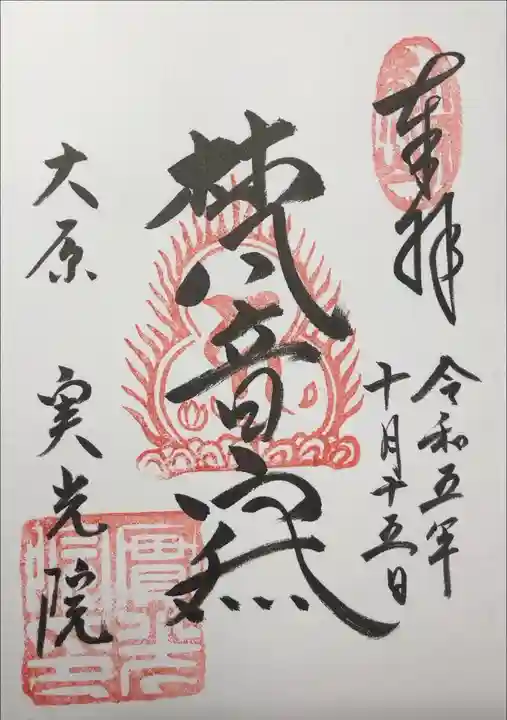 奉拝
令和五年
十月十五日
梵音殿
大原 実光院